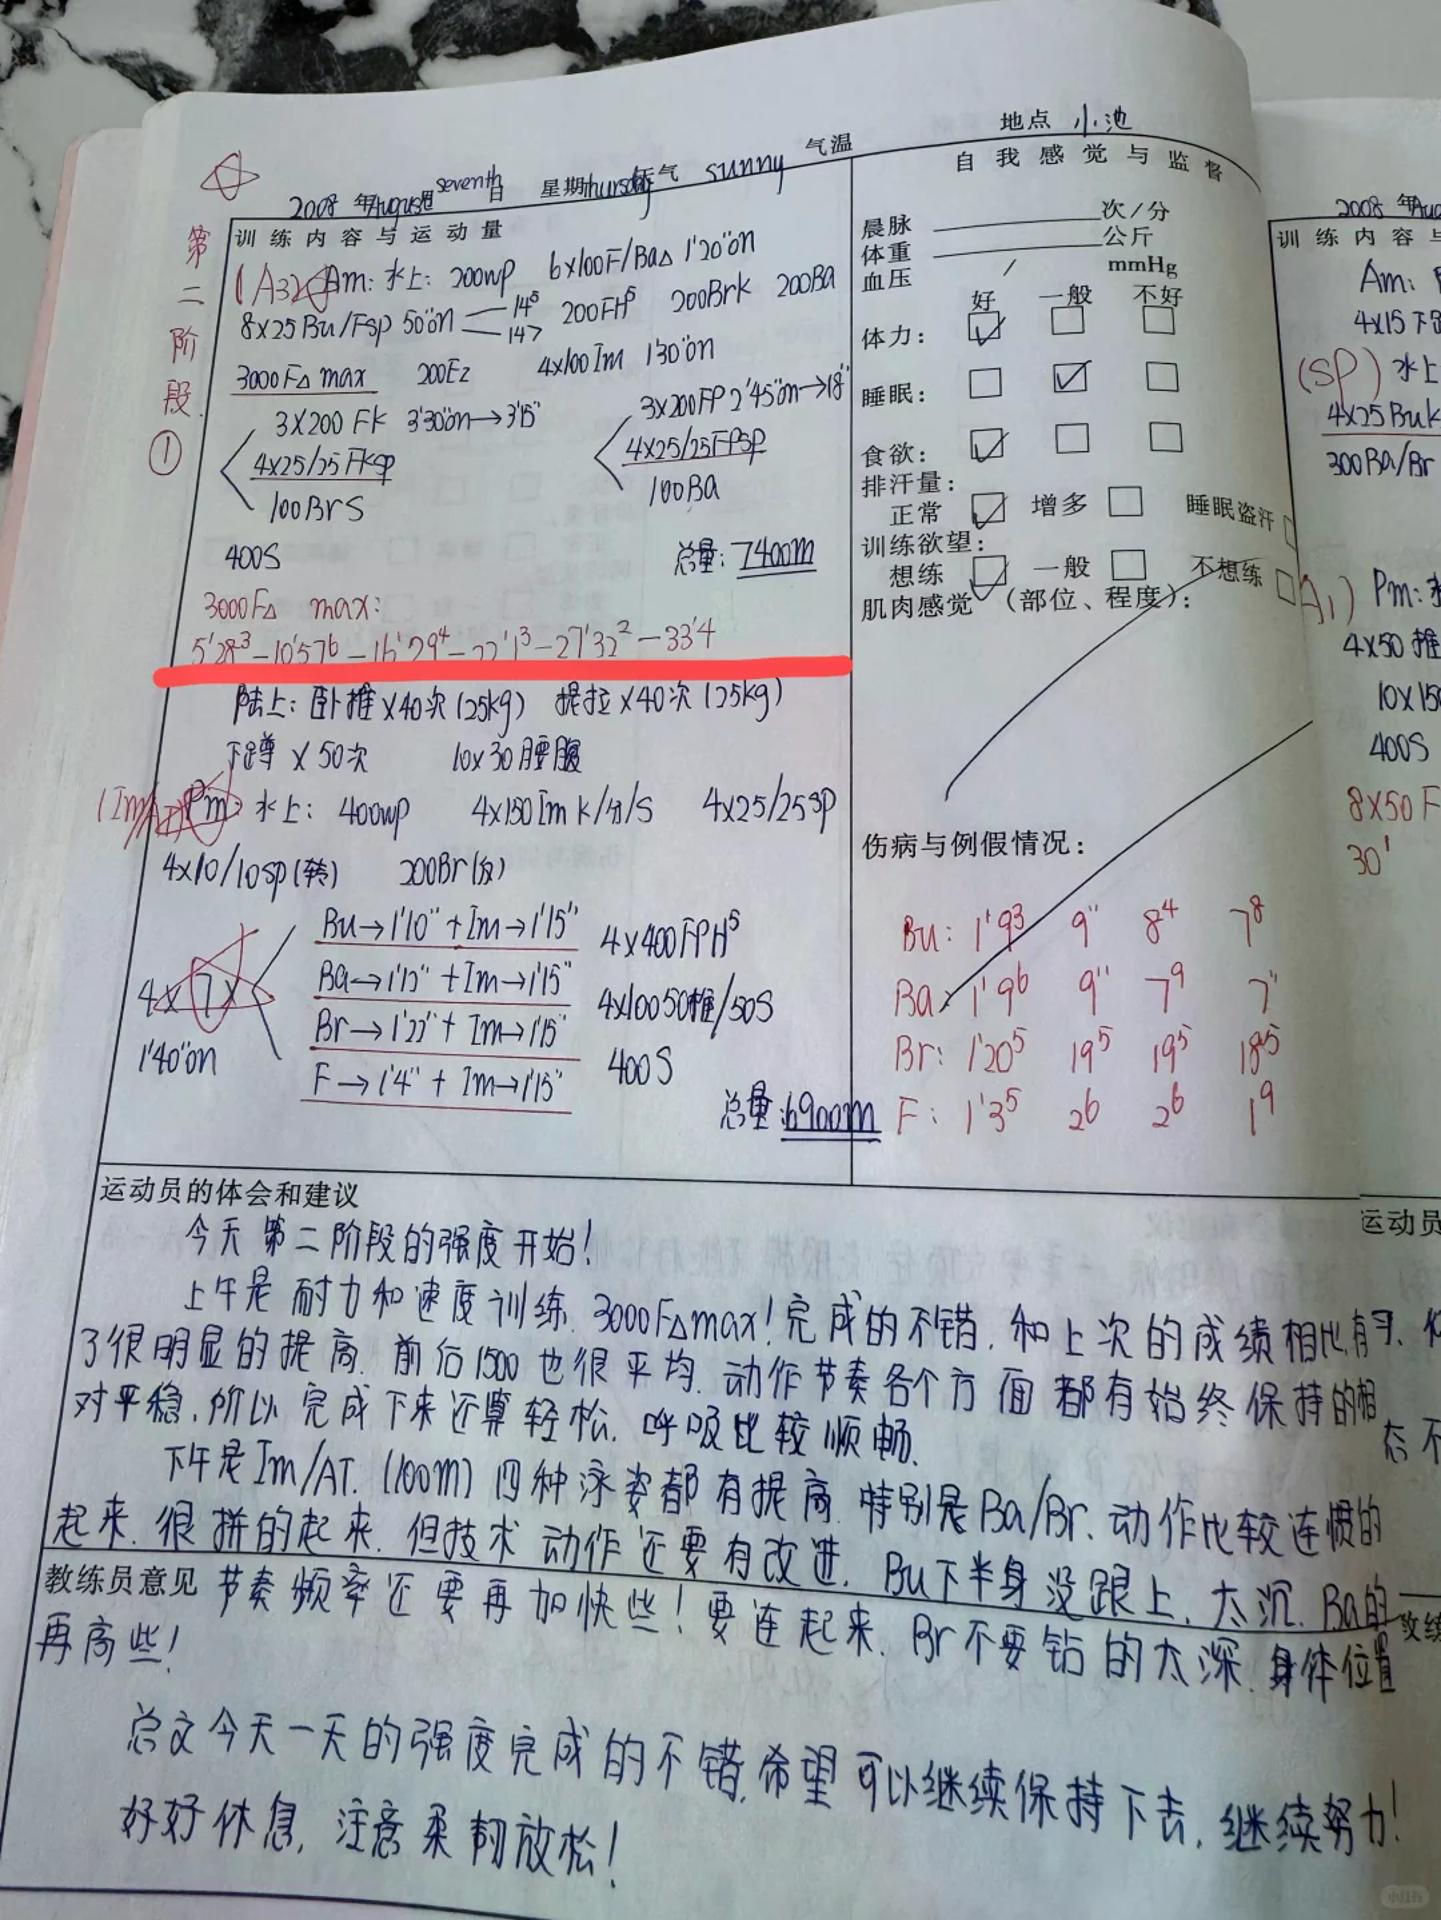 地点 小池
气温
2008年August月seventh日 星期thursday 天气 sunny
自我感觉与监督
第二阶段.①
训练内容与运动量
(A3) Am: 水上: 200wp 6x100F/Ba△ 1'20"on
8x25Bu/Fsp 50"on 14⁵ 200FH⁵ 200Brk 200Ba
147
3000F△ max 200Ez 4x100Im 1'30"on
3x200 FK 3'30"on→3'15" 3x200FP 2'45"on→18"
4x25/25 FKsp 4x25/25FPsp
100BrS 100Ba
400S 总量: 7400m
3000F△ max:
5'28³ - 10'57⁶ - 16'29⁴ - 22'1³ - 27'32² - 33'4
陆上: 卧推 x40次 (25kg) 提拉 x40次 (25kg)
下蹲 x 50次 10x30腰腹
Pm: 水上: 400wp 4x150Im K/分/S 4x25/25sp
4x10/10sp(转) 200Br(分)
Bu→1'10" + Im→1'15" 4x400FPH⁵
Ba→1'12" + Im→1'15"
4x(7)x 4x10050推/50S
Br→1'22" + Im→1'15"
1'40"on 400S
F→1'4" + Im→1'15"
总量: 6900m
晨脉 次/分
体重 公斤
血压 / mmHg
好 一般 不好
体力:
睡眠:
食欲:
排汗量:
正常 增多 睡眠盗汗
训练欲望:
想练 一般 不想练
肌肉感觉 (部位、程度):
伤病与例假情况:
Bu: 1'9³ 9" 8⁴ 7⁸
Ba: 1'9⁶ 9" 7⁹ 7"
Br: 1'20⁵ 19⁵ 19⁵ 18⁵
F: 1'3⁵ 2⁶ 2⁶ 1⁹
运动员的体会和建议
今天第二阶段的强度开始!
上午是耐力和速度训练. 3000F△max! 完成的不错. 和上次的成绩相比有
了很明显的提高. 前后1500也很平均. 动作节奏各个方面都有始终保持的相
对平稳. 所以完成下来还算轻松. 呼吸比较顺畅.
下午是Im/AT. (100m) 四种泳姿都有提高. 特别是Ba/Br. 动作比较连惯的
起来. 很拼的起来. 但技术动作还要有改进. Bu下半身没跟上. 太沉. Ba的
教练员意见 节奏频率还要再加快些! 要连起来. Br不要钻的太深. 身体位置
再高些!
总文今天一天的强度完成的不错. 希望可以继续保持下去. 继续努力!
好好休息, 注意柔韧放松!
2008年Aug
训练内容与
Am:
4x15下
(SP) 水上
4x25Buk
300Ba/Br
(A1) Pm: 水
4x50推
10x150
400S
8x50F
30'
运动员
态不
教练
小红书